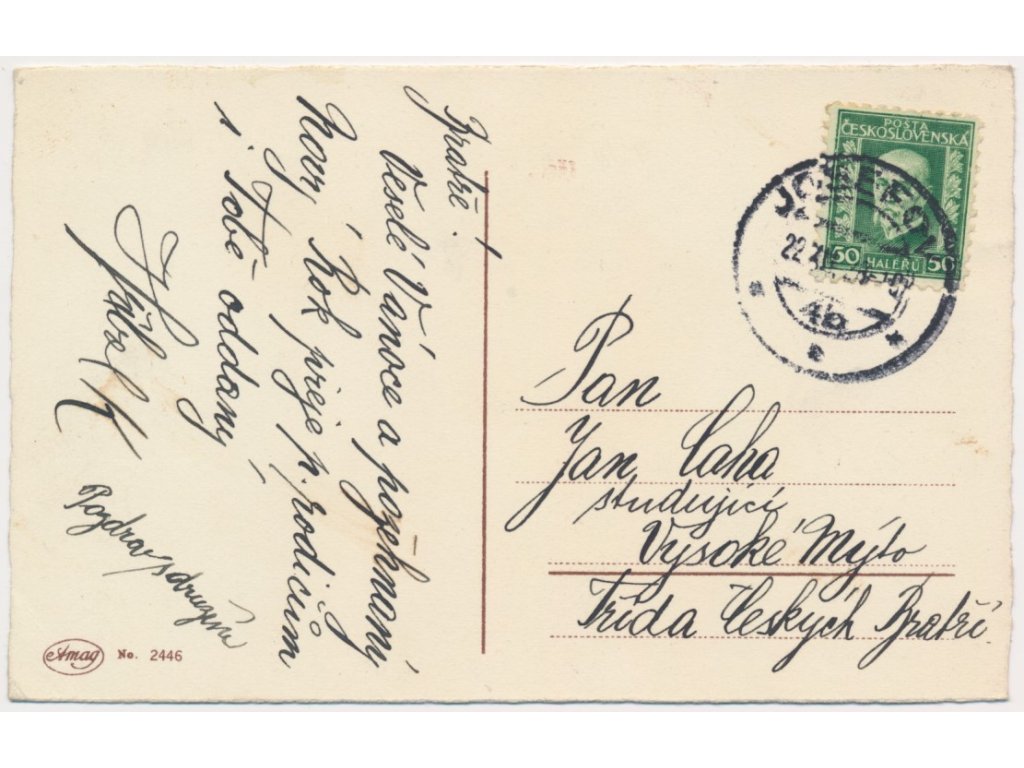 Bratře!
Veselé Vánoce a požehnaný
Nový Rok přeje p. rodičům
i Tobě oddaný
Pozdrav
POŠTA
ČESKOSLOVENSKÁ
50 HALÉŘŮ 50
JOSEFOV
22. XII.
4b
Pan
Jan Caha
studující
Vysoké Mýto
Třída Českých Bratří
Amag No. 2446